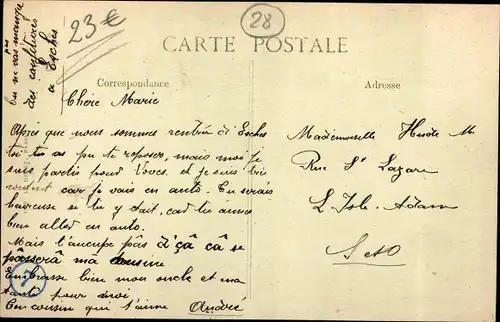 Tu ne vas pas manger
des confitures
à Esches
23€
28
CARTE POSTALE
Correspondance
Adresse
Chère Marie
Après que nous sommes rentré à Esches
toi tu as pu te reposer, mais moi je
suis partis pour Voves. et je suis très
content car je vais en auto. Tu serais
heureuse si tu y était, car tu aimes
bien aller en auto.
Mais t'occupe pâs d'çâ çâ se
pâsserâ mâ cousine
Embrasse bien mon oncle et ma
tante pour moi
Ton cousin qui t'aime André
7
Mademoiselle Hude M
Rue St Lazare
L Isle-Adam
S et O